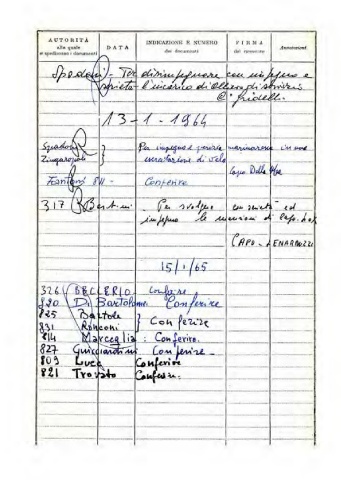 AUTORITÀ alla quale si spediscono i documenti DATA INDICAZIONE E NUMERO dei documenti FIRMA del ricevente Annotazioni
Spadoni - Per disimpegnare con impegno e
serietà l'incarico di Allievo di servizio
13-1-1964
Spadoni Per impegno e perizia marinaresca in una
Zingaropoli } esercitazione di vela
Capo Della
Fantoni 811 - Conferire
317 Bertini - Per svolgere con serietà ed
impegno le mansioni di Capo
CAPO - LENARDUZZI
15/1/65
326 BECLERIO Conferire
820 Di Bartolomeo Conferire
825 Bartole
831 Ronconi } Conferire
814 Marceglia : Conferire.
827 Guicciardini Conferire -
809 Luca Conferire
821 Trovato Conferire.